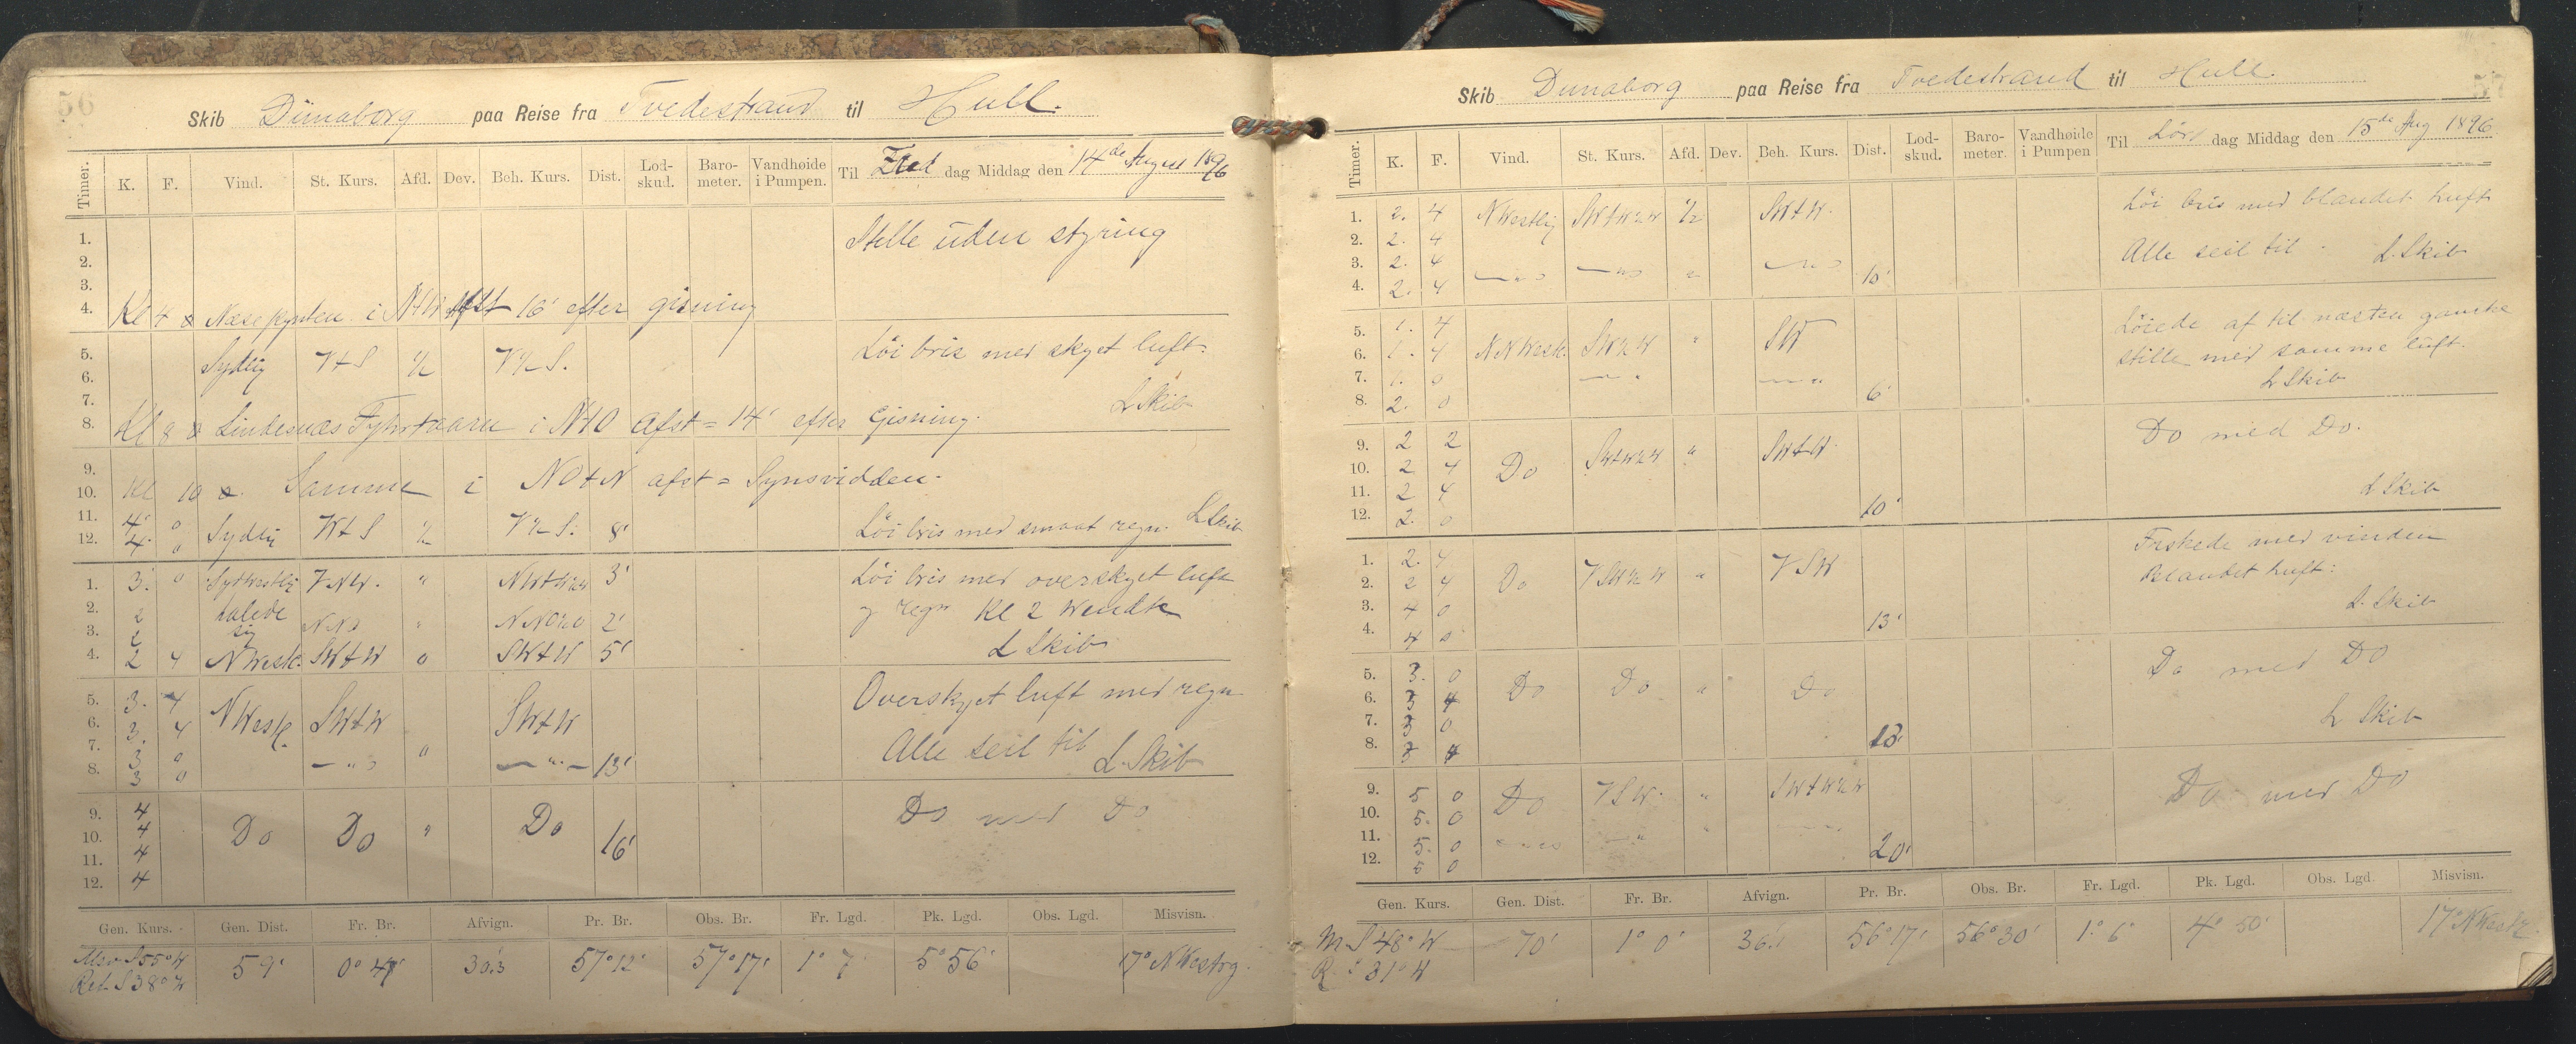 56
Skib Dünaborg paa Reise fra Tvedestrand til Hull.
Timer. K. F. Vind. St. Kurs. Afd. Dev. Beh. Kurs. Dist. Lod-skud. Baro-meter. Vandhøide i Pumpen. Til Fred dag Middag den 14de August 1896
1. Stille uden styring
2.
3.
4. Kl 4 Næsepynten i NtW afst 16' efter gisning
5. Sydlig VtS ½ V½S. Löi bris med skyet luft.
6.
7. L Skib
8. Kl 8 Lindesnæs Fyhrtaarn i NtO afst = 14' efter Gisning.
9.
10. Kl 10 Samme i NOtN afst = Synsvidden.
11. 4' 0 Sydlig VtS ½ V½S. 8' Löi bris med smaat regn. L Skib
12. 4. 0
1. 3. 0 Sydvestlig VNW. " NWtW½W 3' Löi bris med overskyet luft
2. 2 dalede sig NNO " NNO½O 2' og regn Kl 2 Wendte
3. 2 L Skib
4. 2 4 NWestl. SWtW 0 SWtW 5'
5. 3. 4 NWestl. SWtW SWtW Overskyet luft med regn
6. 3. 4
7. 3 0 " Alle seil til L. Skib
8. 3 0 — " — — " — 13'
9. 4 Do Do " Do Do med Do
10. 4 16'
11. 4
12. 4
Gen. Kurs. Gen. Dist. Fr. Br. Afvign. Pr. Br. Obs. Br. Fr. Lgd. Pk. Lgd. Obs. Lgd. Misvisn.
Misv S55°W 59' 0° 47' 30.3 57°12' 57°17' 1° 7' 5°56' 17° NWestrg.
Ret. S38°W
57
Skib Dunaborg paa Reise fra Tvedestrand til Hull.
Timer. K. F. Vind. St. Kurs. Afd. Dev. Beh. Kurs. Dist. Lod-skud. Baro-meter. Vandhøide i Pumpen Til Lörs dag Middag den 15de Aug 1896
1. 2. 4 NWestlig SWtW½W ½ SWtW. Löi bris med blandet luft
2. 2. 4
3. 2. 4 — " — — " — " — " — Alle seil til. L. Skib
4. 2. 4 10'
5. 1. 4 Löiede af til næsten ganske
6. 1. 4 NNWestl. SW½W " SW stille med samme luft.
7. 1. 0 — " — " L Skib
8. 2. 0 6'
9. 2 2 Do med Do.
10. 2 4 Do SWtW½W " SWtW
11. 2 4 L Skib
12. 2. 0 10'
1. 2. 4 Friskede med vinden
2. 2 4 Do VSW½W " VSW Blandet luft:
3. 4 0 L. Skib
4. 4 0 13'
5. 3. 0 Do Do " Do Do med Do
6. 3 4
7. 3 0 L Skib
8. 3 4 13'
9. 5 0 Do VSW. " SWtW½W Do med Do
10. 5. 0
11. 5. 0
12. 5 0 20'
Gen. Kurs. Gen. Dist. Fr. Br. Afvign. Pr. Br. Obs. Br. Fr. Lgd. Pk. Lgd. Obs. Lgd. Misvisn.
M. S 48° W 70' 1° 0' 36.' 56°17' 56°30' 1° 6' 4° 50' 17° NWestl.
R. S 31° W